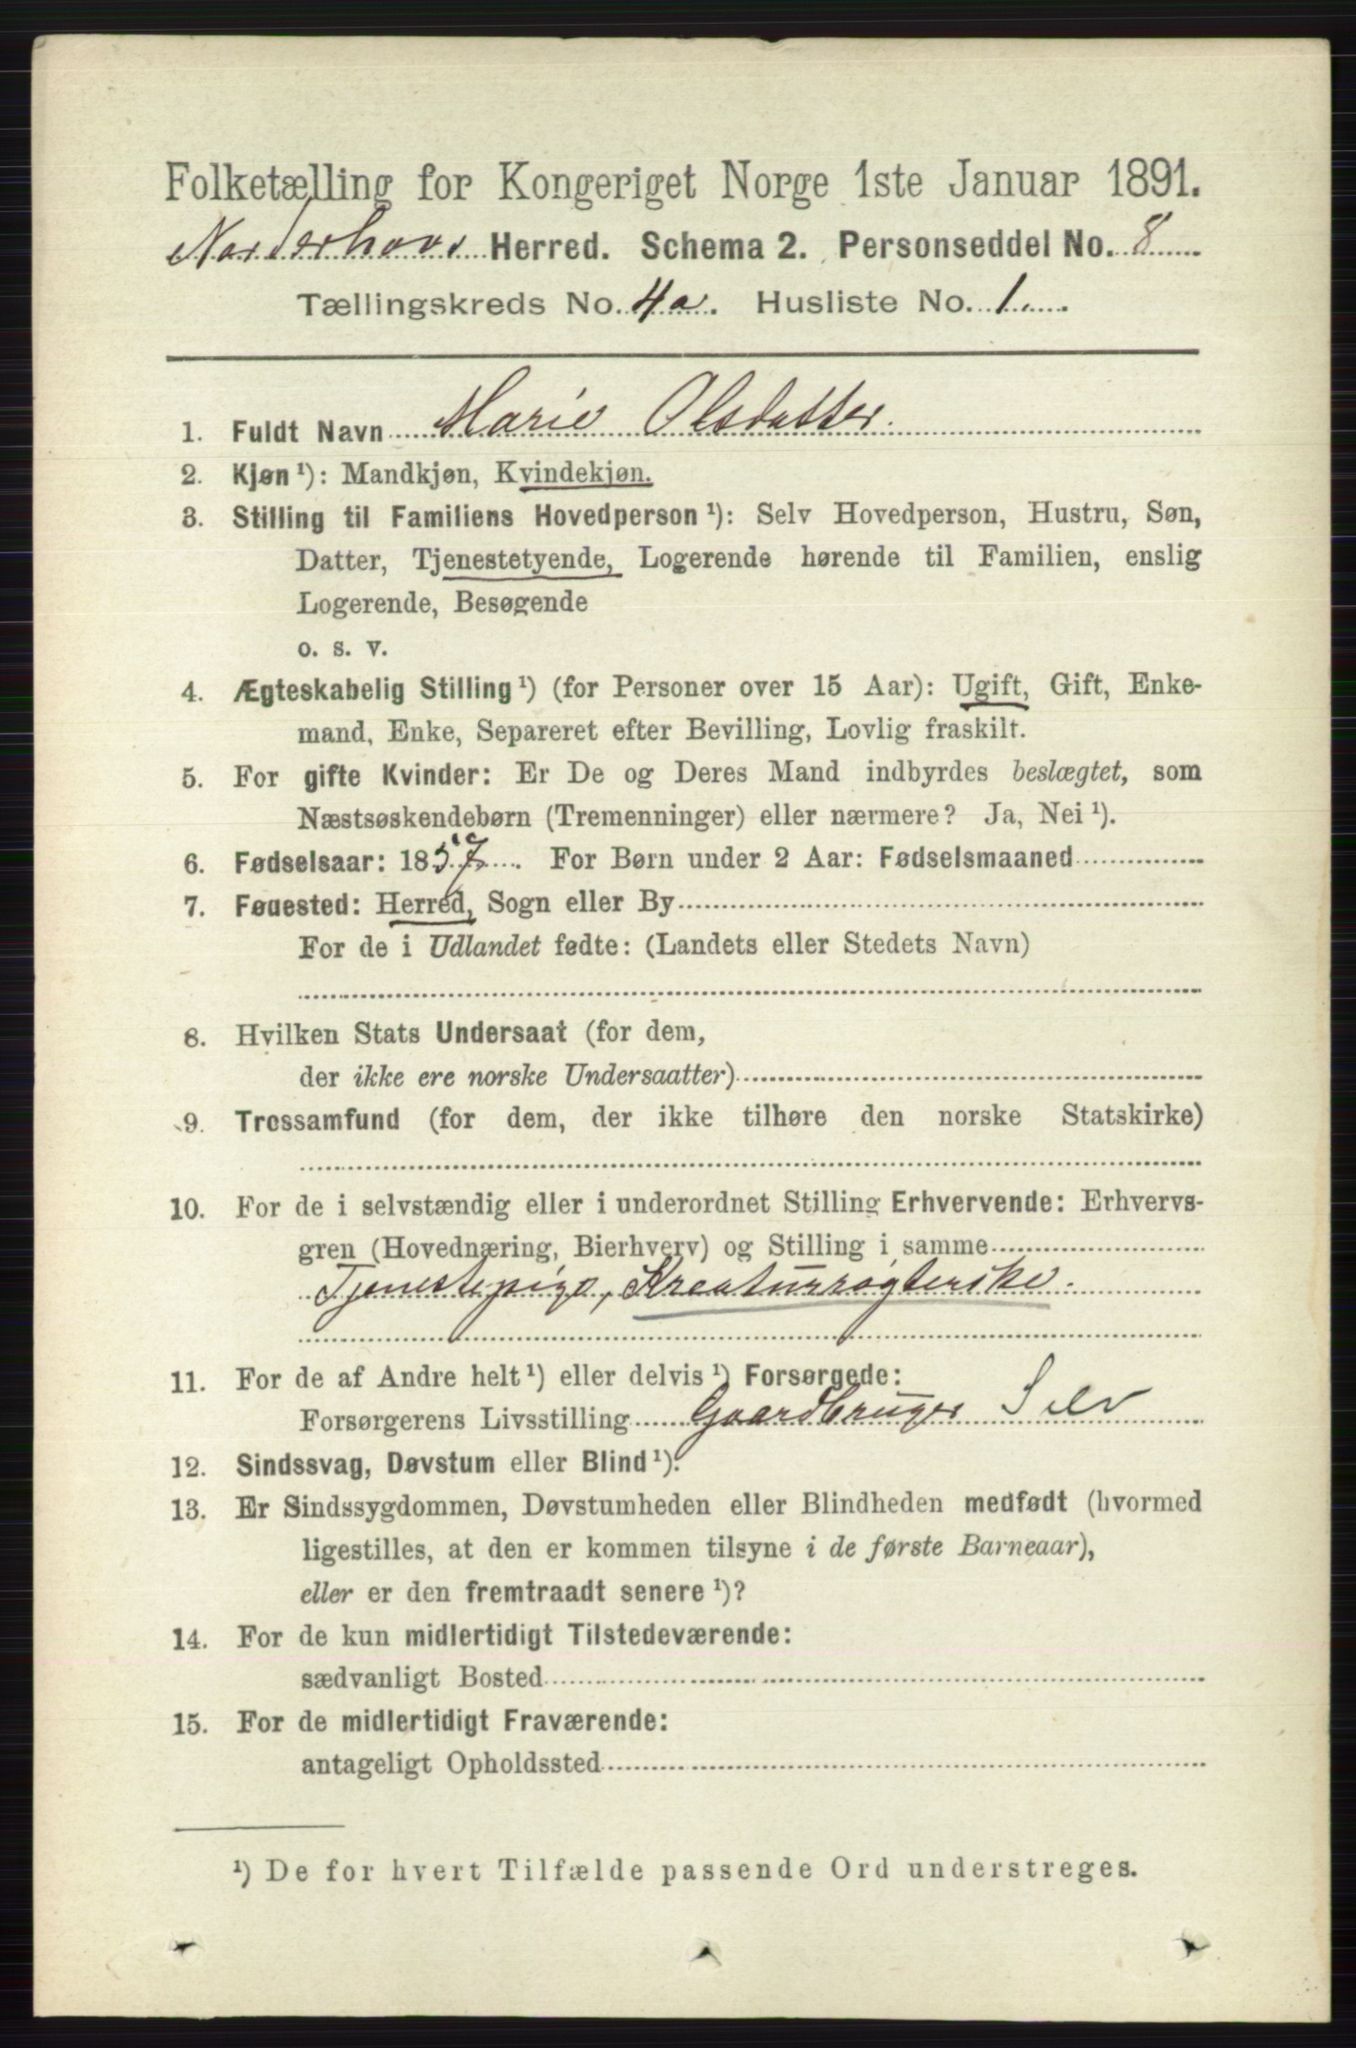 Folketælling for Kongeriget Norge 1ste Januar 1891.
Norderhovs Herred. Schema 2. Personseddel No. 8
Tællingskreds No. 4a. Husliste No. 1.
1. Fuldt Navn Marie Olsdatter.
2. Kjøn ¹): Mandkjøn, Kvindekjøn.
3. Stilling til Familiens Hovedperson ¹): Selv Hovedperson, Hustru, Søn,
Datter, Tjenestetyende, Logerende hørende til Familien, enslig
Logerende, Besøgende
o. s. v.
4. Ægteskabelig Stilling ¹) (for Personer over 15 Aar): Ugift, Gift, Enke-
mand, Enke, Separeret efter Bevilling, Lovlig fraskilt.
5. For gifte Kvinder: Er De og Deres Mand indbyrdes beslægtet, som
Næstsøskendebørn (Tremenninger) eller nærmere? Ja, Nei ¹).
6. Fødselsaar: 1857. For Børn under 2 Aar: Fødselsmaaned
7. Føuested: Herred, Sogn eller By
For de i Udlandet fødte: (Landets eller Stedets Navn)
8. Hvilken Stats Undersaat (for dem,
der ikke ere norske Undersaatter)
9. Trossamfund (for dem, der ikke tilhøre den norske Statskirke)
10. For de i selvstændig eller i underordnet Stilling Erhvervende: Erhvervs-
gren (Hovednæring, Bierhverv) og Stilling i samme
Tjenestepige, Kreaturrøgterske.
11. For de af Andre helt ¹) eller delvis ¹) Forsørgede:
Forsørgerens Livsstilling Gaardbruger Selv
12. Sindssvag, Døvstum eller Blind ¹).
13. Er Sindssygdommen, Døvstumheden eller Blindheden medfødt (hvormed
ligestilles, at den er kommen tilsyne i de første Barneaar),
eller er den fremtraadt senere ¹)?
14. For de kun midlertidigt Tilstedeværende:
sædvanligt Bosted
15. For de midlertidigt Fraværende:
antageligt Opholdssted
¹) De for hvert Tilfælde passende Ord understreges.